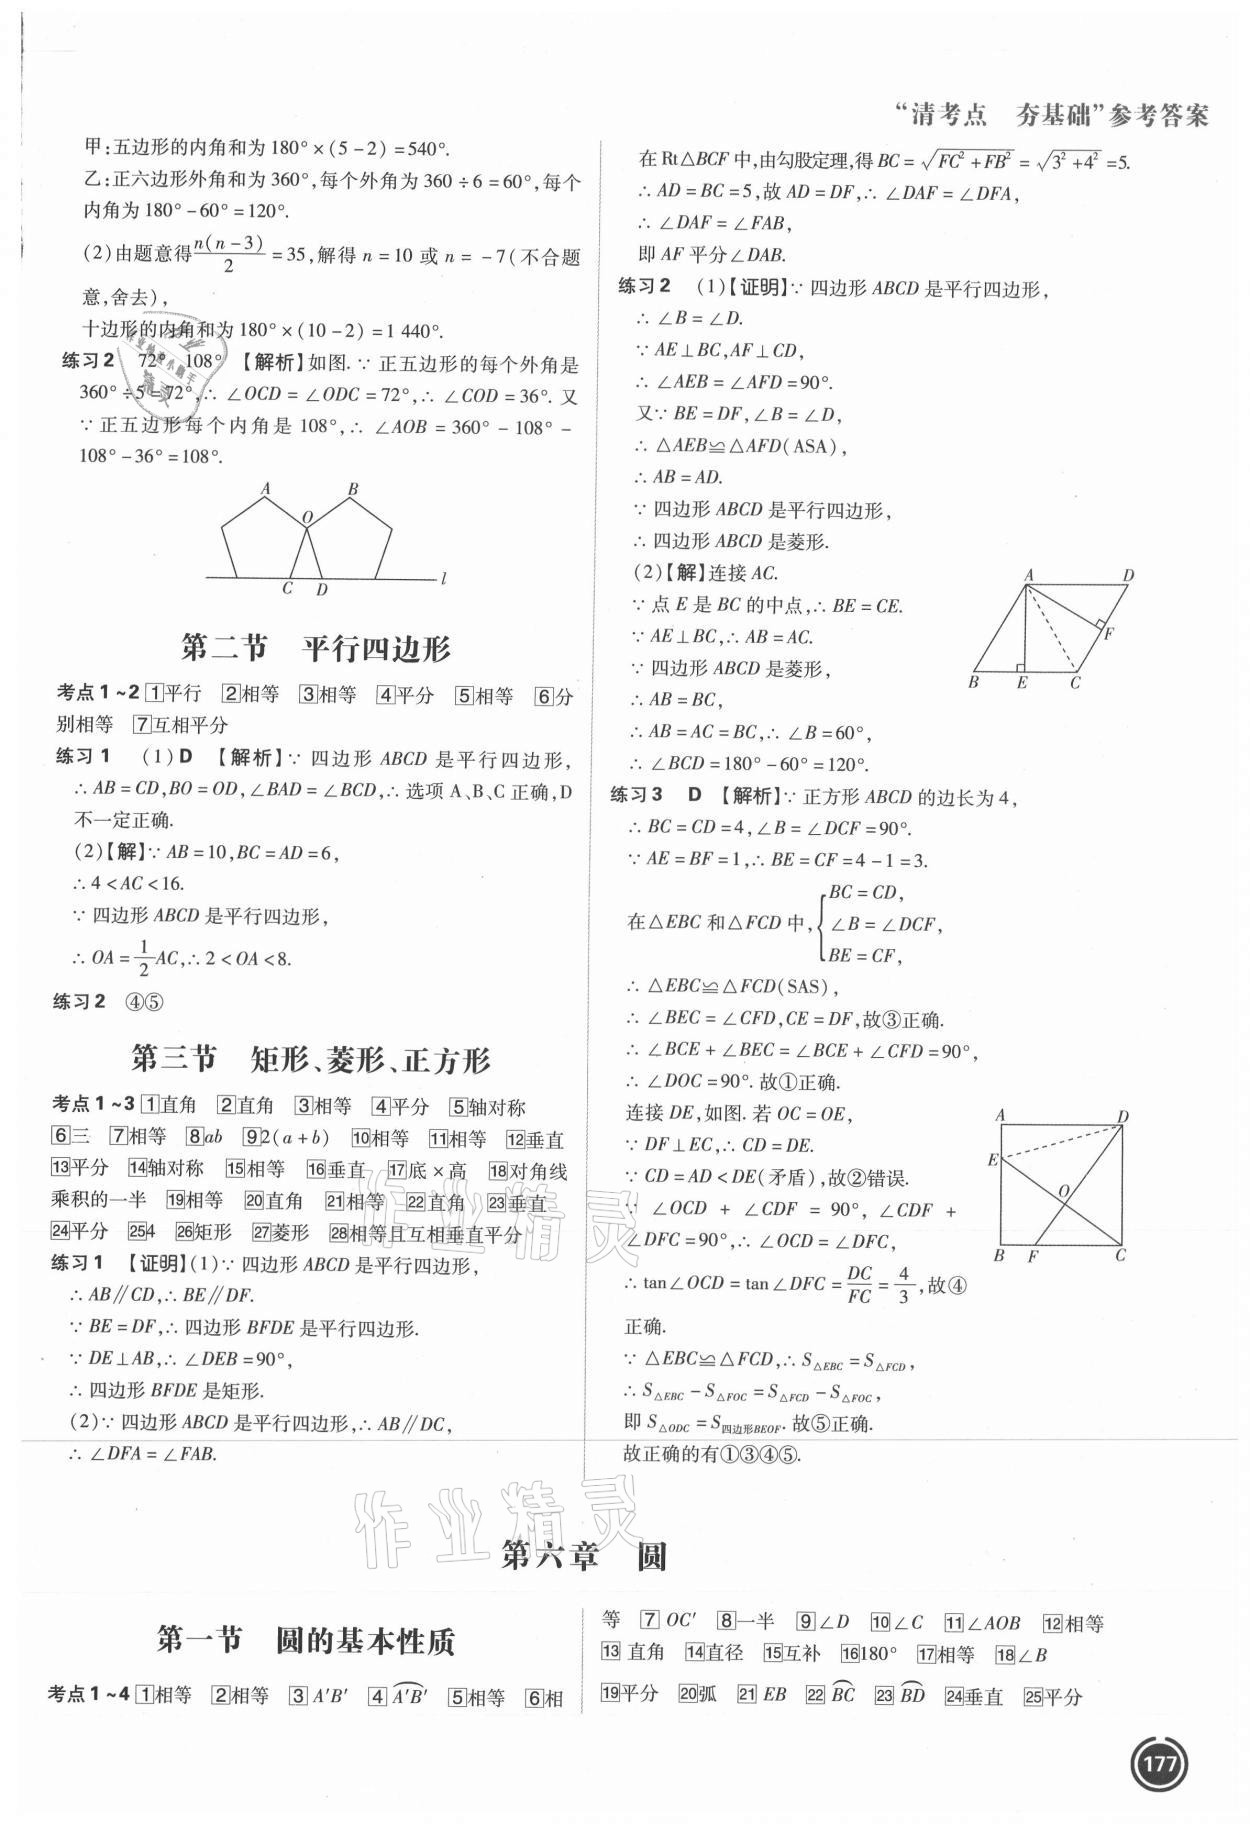 “清考点　夯基础”参考答案
甲:五边形的内角和为180°×(5－2)=540°.
乙:正六边形外角和为360°,每个外角为360÷6=60°,每个
内角为180°－60°=120°.
(2)由题意得n(n－3)/2=35,解得n=10或n=－7(不合题
意,舍去),
十边形的内角和为180°×(10－2)=1 440°.
练习2　72°　108°　【解析】如图.∵正五边形的每个外角是
360°÷5=72°,∴∠OCD=∠ODC=72°,∴∠COD=36°.又
∵正五边形每个内角是108°,∴∠AOB=360°－108°－
108°－36°=108°.
A　B
O
C　D　l
第二节　平行四边形
考点1~2 1平行　2相等　3相等　4平分　5相等　6分
别相等　7互相平分
练习1　(1)D　【解析】∵四边形ABCD是平行四边形,
∴AB=CD,BO=OD,∠BAD=∠BCD,∴选项A、B、C正确,D
不一定正确.
(2)【解】∵AB=10,BC=AD=6,
∴4<AC<16.
∵四边形ABCD是平行四边形,
∴OA=1/2AC,∴2<OA<8.
练习2　④⑤
第三节　矩形、菱形、正方形
考点1~3 1直角　2直角　3相等　4平分　5轴对称
6三　7相等　8ab　92(a+b)　10相等　11相等　12垂直
13平分　14轴对称　15相等　16垂直　17底×高　18对角线
乘积的一半　19相等　20直角　21相等　22直角　23垂直
24平分　254　26矩形　27菱形　28相等且互相垂直平分
练习1　【证明】(1)∵四边形ABCD是平行四边形,
∴AB∥CD,∴BE∥DF.
∵BE=DF,∴四边形BFDE是平行四边形.
∵DE⊥AB,∴∠DEB=90°,
∴四边形BFDE是矩形.
(2)∵四边形ABCD是平行四边形,∴AB∥DC,
∴∠DFA=∠FAB.
在Rt△BCF中,由勾股定理,得BC=√(FC²+FB²)=√(3²+4²)=5.
∴AD=BC=5,故AD=DF,∴∠DAF=∠DFA,
∴∠DAF=∠FAB,
即AF平分∠DAB.
练习2　(1)【证明】∵四边形ABCD是平行四边形,
∴∠B=∠D.
∵AE⊥BC,AF⊥CD,
∴∠AEB=∠AFD=90°.
又∵BE=DF,∠B=∠D,
∴△AEB≌△AFD(ASA),
∴AB=AD.
∵四边形ABCD是平行四边形,
∴四边形ABCD是菱形.
(2)【解】连接AC.
∵点E是BC的中点,∴BE=CE.
∵AE⊥BC,∴AB=AC.
∵四边形ABCD是菱形,
∴AB=BC,
∴AB=AC=BC,∴∠B=60°,
∴∠BCD=180°－60°=120°.
A　D
F
B　E　C
练习3　D　【解析】∵正方形ABCD的边长为4,
∴BC=CD=4,∠B=∠DCF=90°.
∵AE=BF=1,∴BE=CF=4－1=3.
在△EBC和△FCD中,{BC=CD,
∠B=∠DCF,
BE=CF,
∴△EBC≌△FCD(SAS),
∴∠BEC=∠CFD,CE=DF,故③正确.
∴∠BCE+∠BEC=∠BCE+∠CFD=90°,
∴∠DOC=90°.故①正确.
连接DE,如图.若OC=OE,
∵DF⊥EC,∴CD=DE.
∵CD=AD<DE(矛盾),故②错误.
∵∠OCD+∠CDF=90°,∠CDF+
∠DFC=90°,∴∠OCD=∠DFC,
∴tan∠OCD=tan∠DFC=DC/FC=4/3,故④
正确.
∵△EBC≌△FCD,∴S△EBC=S△FCD,
∴S△EBC－S△FOC=S△FCD－S△FOC,
即S△ODC=S四边形BEOF.故⑤正确.
故正确的有①③④⑤.
A　D
E
O
B　F　C
第六章　圆
第一节　圆的基本性质
考点1~4 1相等　2相等　3A′B′　4A′B′⌒　5相等　6相
等　7OC′　8一半　9∠D　10∠C　11∠AOB　12相等
13直角　14直径　15互补　16180°　17相等　18∠B
19平分　20弧　21EB　22BC⌒　23BD⌒　24垂直　25平分
177
作业精灵
作业精灵